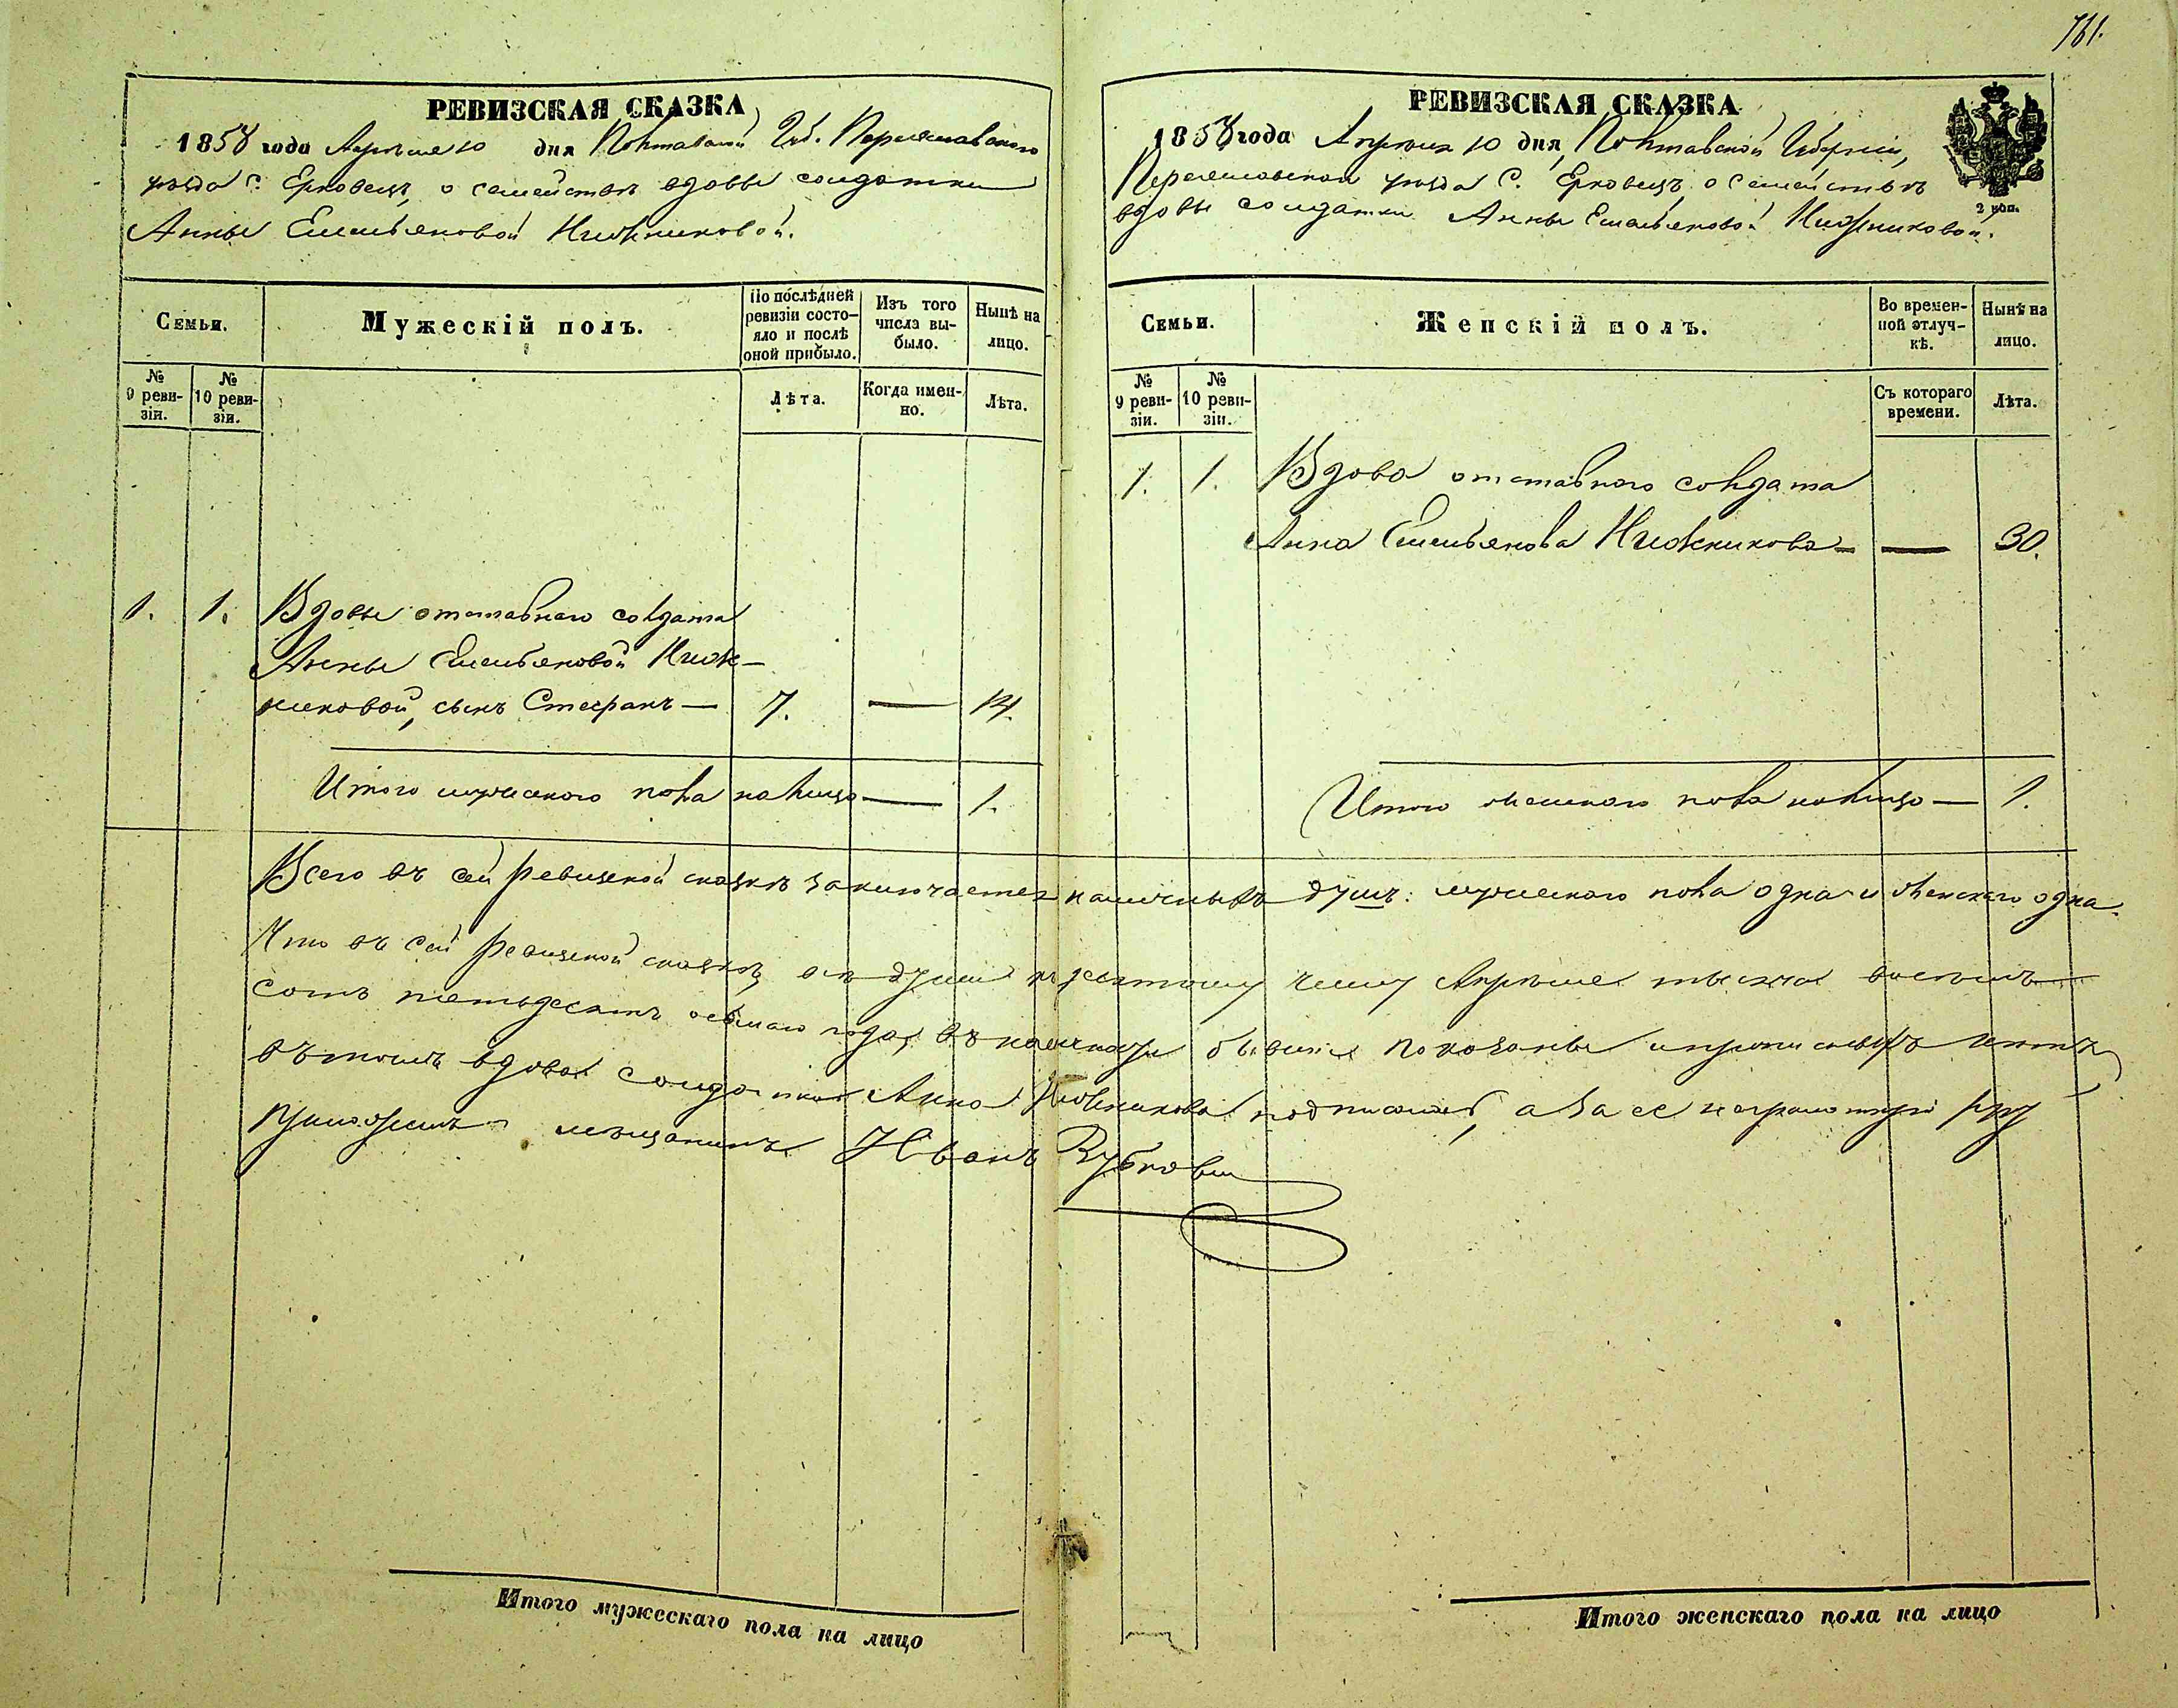 761.
РЕВИЗСКАЯ СКАЗКА
1858 года Апреля 10 дня Полтавской Губ. Переяславского
уезда с. Ерковецъ, о семействѣ вдовы солдатки
Анны Емельяновой Нижниковой.
Семьи.
Мужескій полъ.
По послѣдней ревизіи состо-
яло и послѣ
оной прибыло.
Изъ того
числа вы-
было.
Нынѣ на
лицо.
№
9 реви-
зіи.
№
10 реви-
зіи.
Лѣта.
Когда имен-
но.
Лѣта.
1. 1. Вдовы отставнаго солдата
Анны Емельяновой Ниж-
никовой, сынъ Стефанъ — 7. — 14.
Итого мужескаго пола на лицо — 1.
РЕВИЗСКАЯ СКАЗКА
1858 года Апреля 10 дня, Полтавской Губерніи,
Переяславскаго уезда С. Ерковецъ о семействѣ
вдовы солдатки Анны Емельяновой Нижниковой.
2 коп.
Семьи.
Женскій полъ.
Во времен-
ной отлуч-
кѣ.
Нынѣ на
лицо.
№
9 реви-
зіи.
№
10 реви-
зіи.
Съ котораго
времени.
Лѣта.
1. 1. Вдова отставнаго солдата
Анна Емельянова Нижникова — — 30.
Итого женскаго пола на лицо — 1.
Всего въ сей ревизской сказкѣ заключается наличныхъ душъ: мужескаго пола одна и женскаго одна.
Что въ сей ревизской сказкѣ всѣ души к десятому числу Апреля тысяча восемь-
сотъ пятьдесятъ осьмаго года, въ наличности бывшія показаны и прописныхъ нетъ
въ томъ вдова солдатка Анна Нижникова подписалась, а за ее неграмотную руку
приложилъ мѣщанинъ Иванъ
Итого мужескаго пола на лицо
Итого женскаго пола на лицо